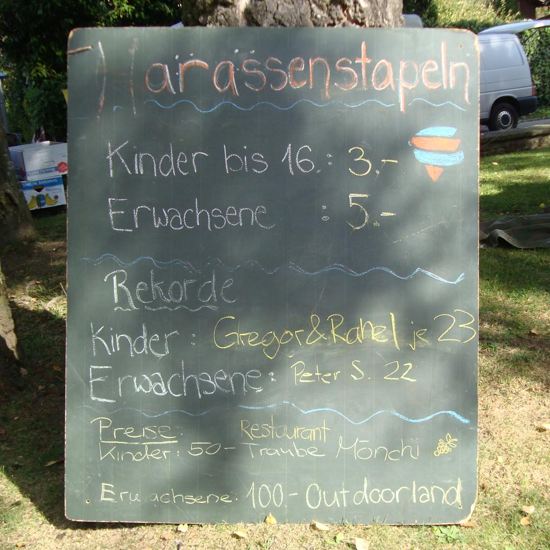 Harassenstapeln
Kinder bis 16.: 3.-
Erwachsene : 5.-
Rekorde
Kinder : Gregor & Rahel je 23
Erwachsene: Peter S. 22
Preise: Restaurant
Kinder: 50- Traube Mönchi
Erwachsene: 100- Outdoorland